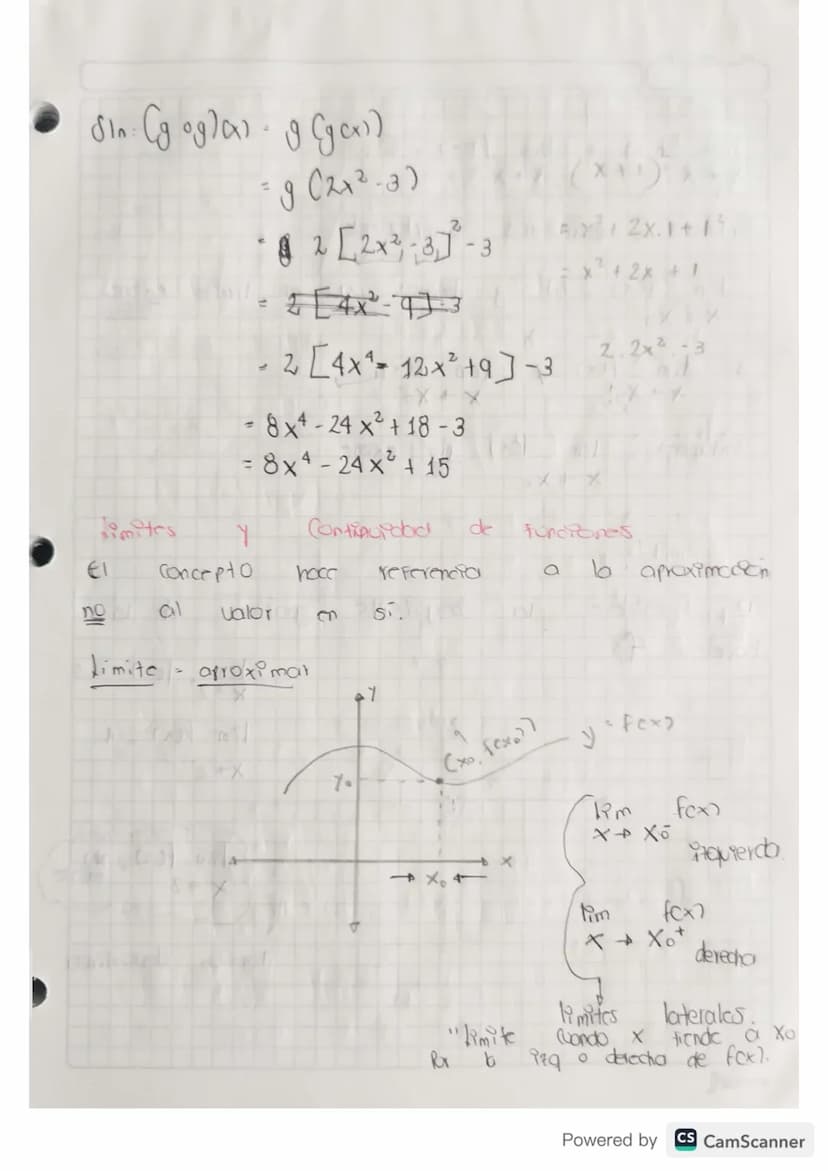 Sln: (g o g)(x) = g (g(x))
= g (2x² - 3)
= 2 [2x² - 3]² - 3
= 2 [4x² - 9] - 3
= 2 [4x⁴ - 12x² + 9] - 3
= 8x⁴ - 24x² + 18 - 3
= 8x⁴ - 24x² + 15
límites y Continuidad de funciones
El concepto hace referencia a la aproximación
no al valor en sí.
límite = aproximar
y
(x₀, f(x₀))
y = f(x)
y₀
x
→ x₀ ←
lim f(x)
x → x₀⁻ izquierda
lim f(x)
x → x₀⁺ derecha
límites laterales.
"límite cuando x tiende a x₀
Por la izq o derecha de f(x).
Powered by CS CamScanner